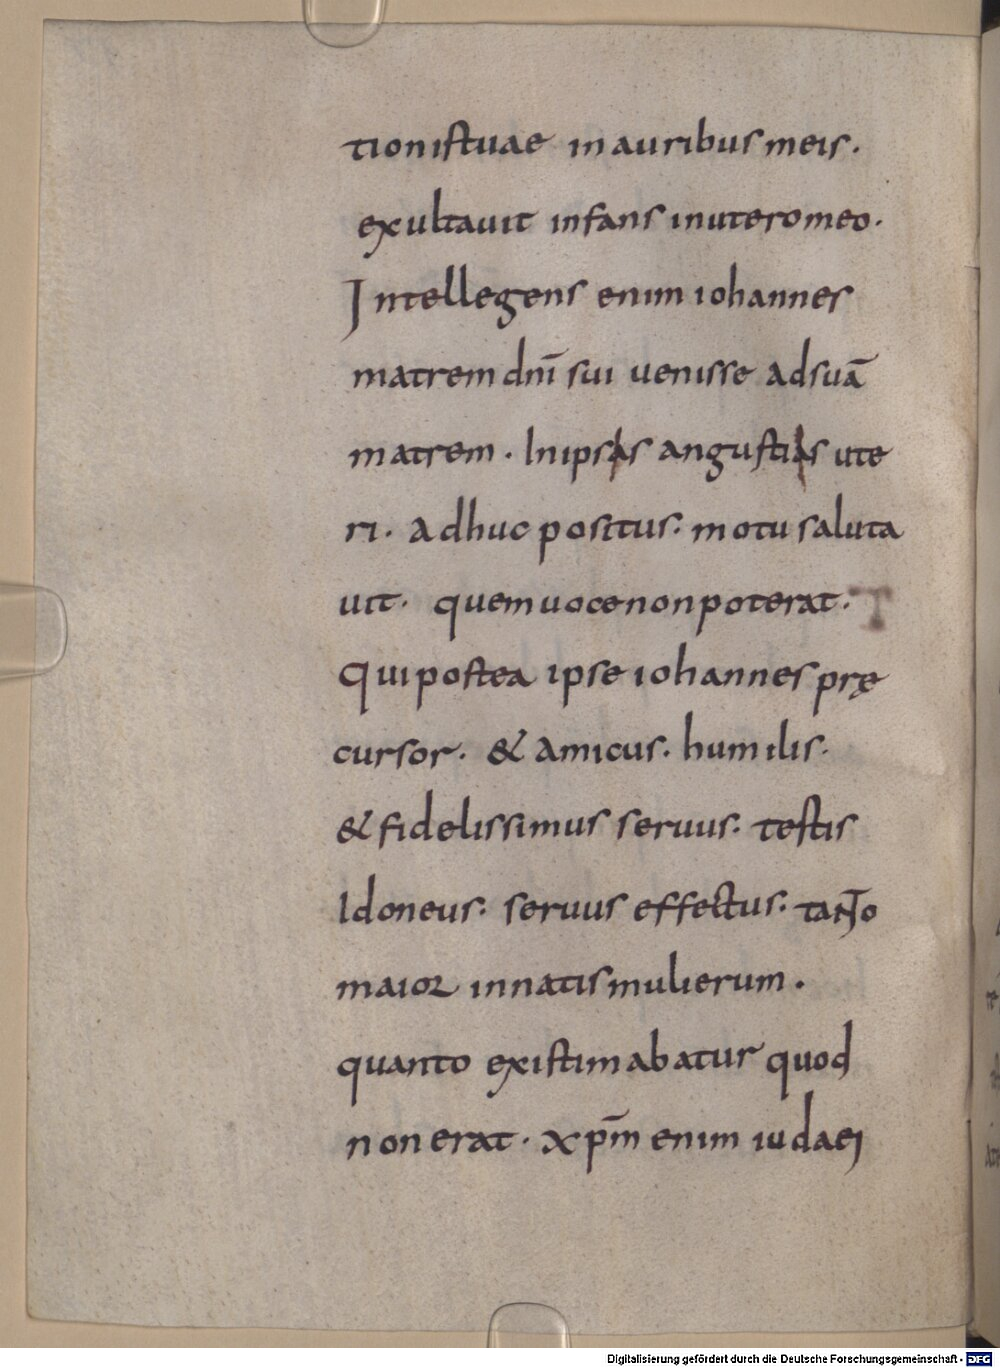 tionis tuae in auribus meis.
exultauit infans in utero meo.
Intellegens enim iohannes
matrem dnī sui uenisse ad suā
matrem. In ipsis angustiis ute
ri. adhuc positus. motu saluta
uit. quem uoce non poterat. T
Qui postea ipse iohannes prę
cursor. & amicus. humilis.
& fidelissimus seruus. testis
Idoneus. seruus effectus. tanto
maior in natis mulierum.
quanto existimabatur quod
non erat. xp̄m enim iudaei
Digitalisierung gefördert durch die Deutsche Forschungsgemeinschaft - DFG